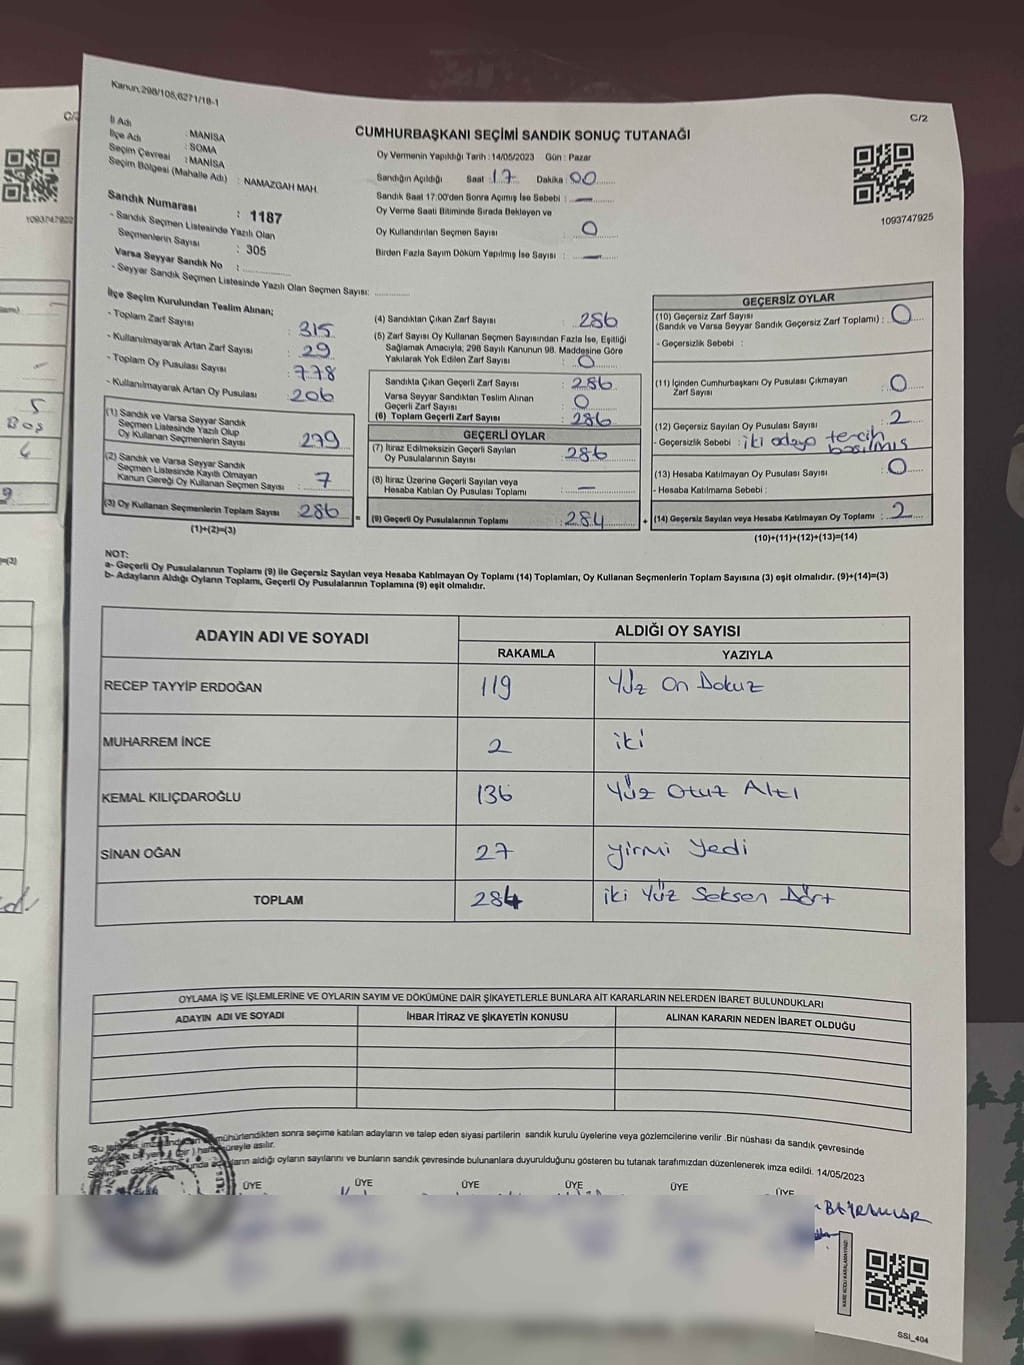 Kanun,298/105,6271/18-1
C/2
İl Adı : MANİSA
İlçe Adı : SOMA
Seçim Çevresi : MANİSA
Seçim Bölgesi (Mahalle Adı) : NAMAZGAH MAH.
CUMHURBAŞKANI SEÇİMİ SANDIK SONUÇ TUTANAĞI
Oy Vermenin Yapıldığı Tarih : 14/05/2023 Gün : Pazar
Sandığın Açıldığı Saat : 17 Dakika : 00
Sandık Saat 17:00'den Sonra Açımış İse Sebebi : —
Oy Verme Saati Bitiminde Sırada Bekleyen ve
Oy Kullandırılan Seçmen Sayısı : 0
Birden Fazla Sayım Döküm Yapılmış İse Sayısı : —
1093747922
1093747925
Sandık Numarası : 1187
- Sandık Seçmen Listesinde Yazılı Olan
Seçmenlerin Sayısı : 305
Varsa Seyyar Sandık No :
- Seyyar Sandık Seçmen Listesinde Yazılı Olan Seçmen Sayısı:
İlçe Seçim Kurulundan Teslim Alınan;
- Toplam Zarf Sayısı : 315
- Kullanılmayarak Artan Zarf Sayısı : 29
- Toplam Oy Pusulası Sayısı : 778
- Kullanılmayarak Artan Oy Pusulası : 206
(1) Sandık ve Varsa Seyyar Sandık
Seçmen Listesinde Yazılı Olup
Oy Kullanan Seçmenlerin Sayısı : 279
(2) Sandık ve Varsa Seyyar Sandık
Seçmen Listesinde Kayıtlı Olmayan
Kanun Gereği Oy Kullanan Seçmen Sayısı : 7
(3) Oy Kullanan Seçmenlerin Toplam Sayısı : 286
(1)+(2)=(3)
(4) Sandıktan Çıkan Zarf Sayısı : 286
(5) Zarf Sayısı Oy Kullanan Seçmen Sayısından Fazla İse, Eşitliği
Sağlamak Amacıyla, 298 Sayılı Kanunun 98. Maddesine Göre
Yakılarak Yok Edilen Zarf Sayısı : 0
Sandıkta Çıkan Geçerli Zarf Sayısı : 286
Varsa Seyyar Sandıktan Teslim Alınan
Geçerli Zarf Sayısı : 0
(6) Toplam Geçerli Zarf Sayısı : 286
GEÇERLİ OYLAR
(7) İtiraz Edilmeksizin Geçerli Sayılan
Oy Pusulalarının Sayısı : 286
(8) İtiraz Üzerine Geçerli Sayılan veya
Hesaba Katılan Oy Pusulası Toplamı : —
= (9) Geçerli Oy Pusulalarının Toplamı : 284
GEÇERSİZ OYLAR
(10) Geçersiz Zarf Sayısı
(Sandık ve Varsa Seyyar Sandık Geçersiz Zarf Toplamı) : 0
- Geçersizlik Sebebi :
(11) İçinden Cumhurbaşkanı Oy Pusulası Çıkmayan
Zarf Sayısı : 0
(12) Geçersiz Sayılan Oy Pusulası Sayısı : 2
- Geçersizlik Sebebi : iki adaya tercih
basılmış
(13) Hesaba Katılmayan Oy Pusulası Sayısı : 0
- Hesaba Katılmama Sebebi :
+ (14) Geçersiz Sayılan veya Hesaba Katılmayan Oy Toplamı : 2
(10)+(11)+(12)+(13)=(14)
NOT:
a- Geçerli Oy Pusulalarının Toplamı (9) ile Geçersiz Sayılan veya Hesaba Katılmayan Oy Toplamı (14) Toplamları, Oy Kullanan Seçmenlerin Toplam Sayısına (3) eşit olmalıdır. (9)+(14)=(3)
b- Adayların Aldığı Oyların Toplamı, Geçerli Oy Pusulalarının Toplamına (9) eşit olmalıdır.
ADAYIN ADI VE SOYADI ALDIĞI OY SAYISI
RAKAMLA YAZIYLA
RECEP TAYYİP ERDOĞAN 119 Yüz On Dokuz
MUHARREM İNCE 2 iki
KEMAL KILIÇDAROĞLU 136 Yüz Otuz Altı
SİNAN OĞAN 27 yirmi yedi
TOPLAM 284 iki Yüz Seksen Dört
OYLAMA İŞ VE İŞLEMLERİNE VE OYLARIN SAYIM VE DÖKÜMÜNE DAİR ŞİKAYETLERLE BUNLARA AİT KARARLARIN NELERDEN İBARET BULUNDUKLARI
ADAYIN ADI VE SOYADI İHBAR İTİRAZ VE ŞİKAYETİN KONUSU ALINAN KARARIN NEDEN İBARET OLDUĞU
"Bu mühürlendikten sonra seçime katılan adayların ve talep eden siyasi partilerin sandık kurulu üyelerine veya gözlemcilerine verilir. Bir nüshası da sandık çevresinde
süreyle asılır.
aldığı oyların sayılarını ve bunların sandık çevresinde bulunanlara duyurulduğunu gösteren bu tutanak tarafımızdan düzenlenerek imza edildi. 14/05/2023
ÜYE ÜYE ÜYE ÜYE ÜYE ÜYE
SSİ_404